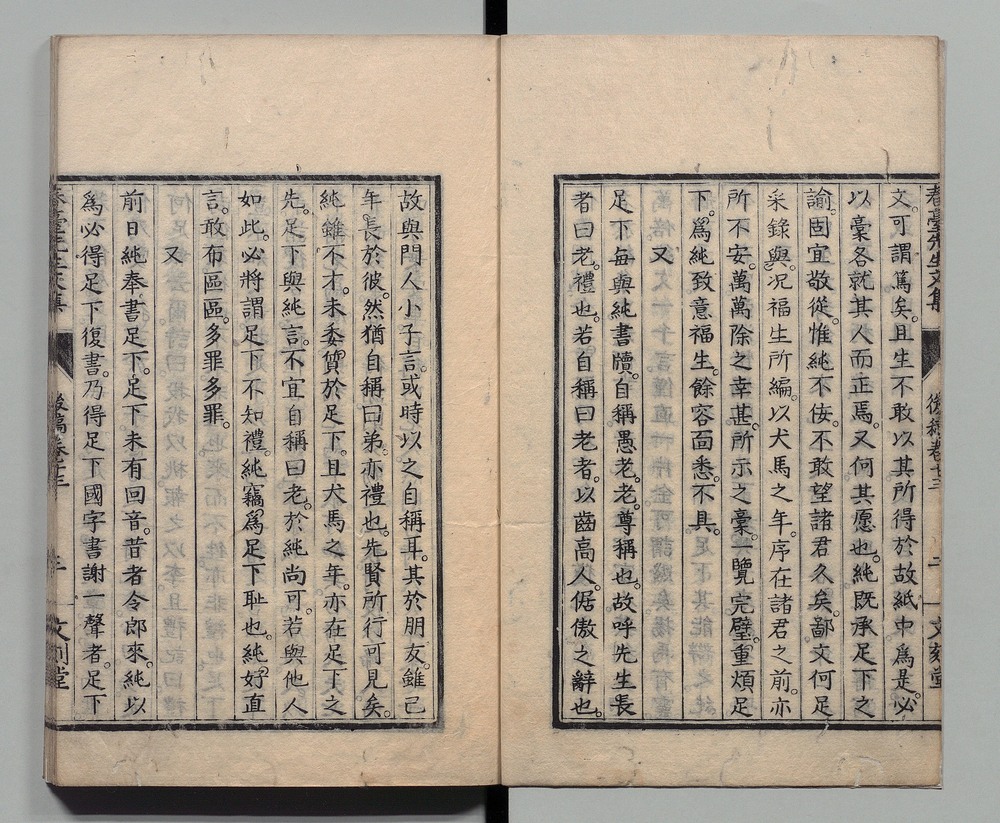 文。可謂篤矣。且生不敢以其所得於故紙中爲是。必
以稾各就其人而正焉。又何其愿也。純既承足下之
諭。固宜敬從。惟純不佞。不敢望諸君久矣。鄙文何足
采錄與。况福生所編。以犬馬之年。序在諸君之前。亦
所不安。萬萬除之幸甚。所示之稾。一覽完璧。重煩足
下。爲純致意福生。餘容面悉。不具。
又
足下每與純書牘。自稱愚老。老尊稱也。故呼先生長
者曰老。禮也。若自稱曰老者。以齒高人。倨傲之辭也。
春臺先生文集
後稿卷十三
文刻堂
故與門人小子言。或時以之自稱耳。其於朋友。雖己
年長於彼。然猶自稱曰弟。亦禮也。先賢所行可見矣。
純雖不才。未委質於足下。且犬馬之年。亦在足下之
先。足下與純言。不宜自稱曰老。於純尚可。若與他人
如此。必將謂足下不知禮。純竊爲足下耻也。純好直
言。敢布區區。多罪多罪。
又
前日純奉書足下。足下未有回音。昔者令郎來。純以
爲必得足下復書。乃得足下國字書謝一聲者。足下